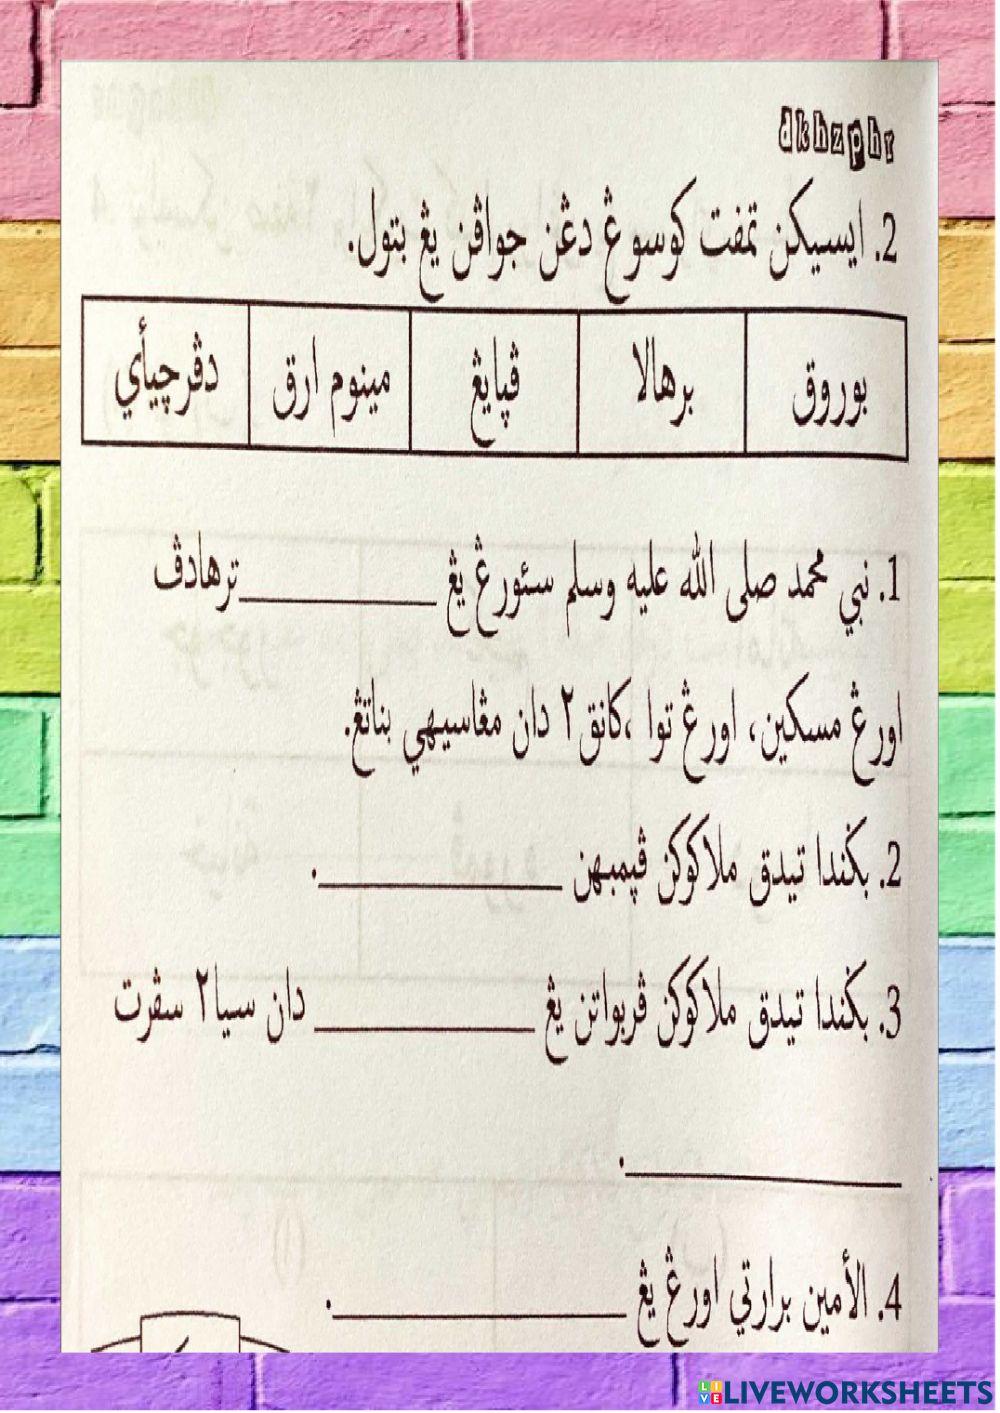 dkhzphr
2. ايسيكن تمفت كوسوڠ دڠن جواڤن يڠ بتول.
بوروق برهالا ڤڽايڠ مينوم ارق دڤرچيأي
1. نبي محمد صلى الله عليه وسلم سئورڠ يڠ ____________ ترهادڤ
اورڠ مسكين، اورڠ توا ،كانق٢ دان مڠاسيهي بناتڠ.
2. بڬندا تيدق ملاكوكن ڤڽمبهن ____________.
3. بڬندا تيدق ملاكوكن ڤربواتن يڠ ____________ دان سيا٢ سڤرت
____________.
4. الأمين برارتي اورڠ يڠ ____________.
LIVEWORKSHEETS